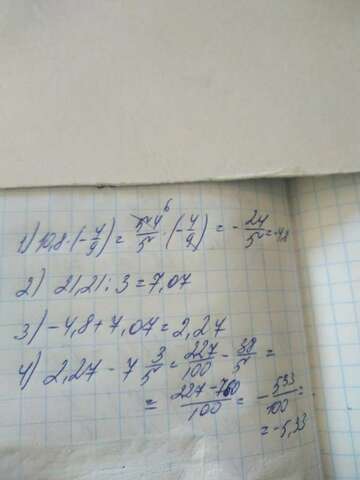 1) 10,8·(-4/9) = 54/5·(-4/9) = -24/5 = -4,8
2) 21,21:3=7,07
3) -4,8+7,07=2,27
4) 2,27-7 3/5=227/100-38/5=
= (227-760)/100=-533/100=
=-5,33